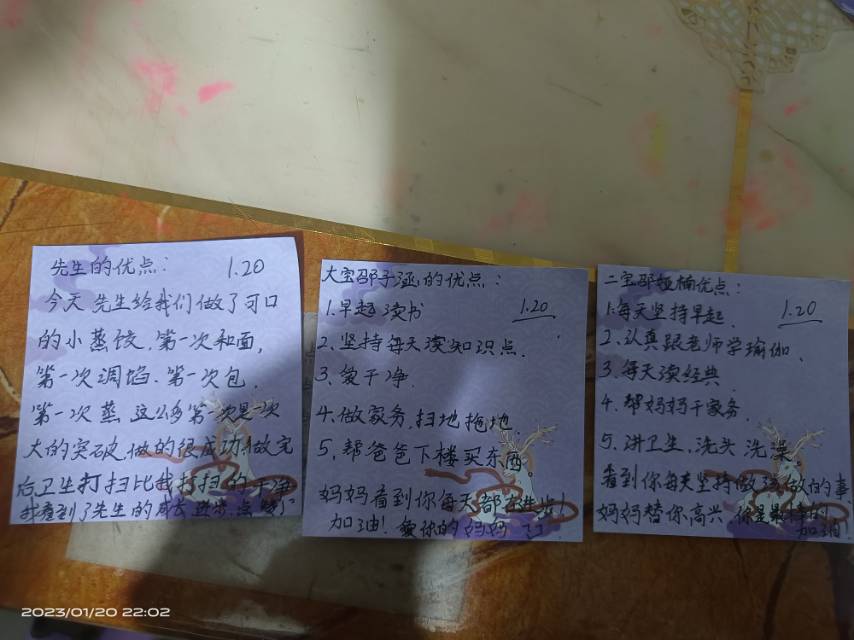 先生的优点: 1.20
今天先生给我们做了可口
的小蒸饺.第一次和面,
第一次调馅.第一次包.
第一次蒸.这么多第一次是一次
大的突破.做的很成功.做完
后卫生打扫比我打扫的干净
我看到了先生的成长进步.点赞了
大宝邵子涵的优点:
1.早起读书 1.20
2.坚持每天读知识点.
3、爱干净.
4.做家务,扫地拖地.
5,帮爸爸下楼买东西
妈妈看到你每天都在进步!
加油! 爱你的妈妈
二宝邵娅楠优点:
1.每天坚持早起. 1.20
2.认真跟老师学瑜伽.
3.每天读经典.
4.帮妈妈干家务.
5.讲卫生,洗头 洗澡.
看到你每天坚持做该做的事
妈妈替你高兴 你是最棒的
加油
2023/01/20 22:02